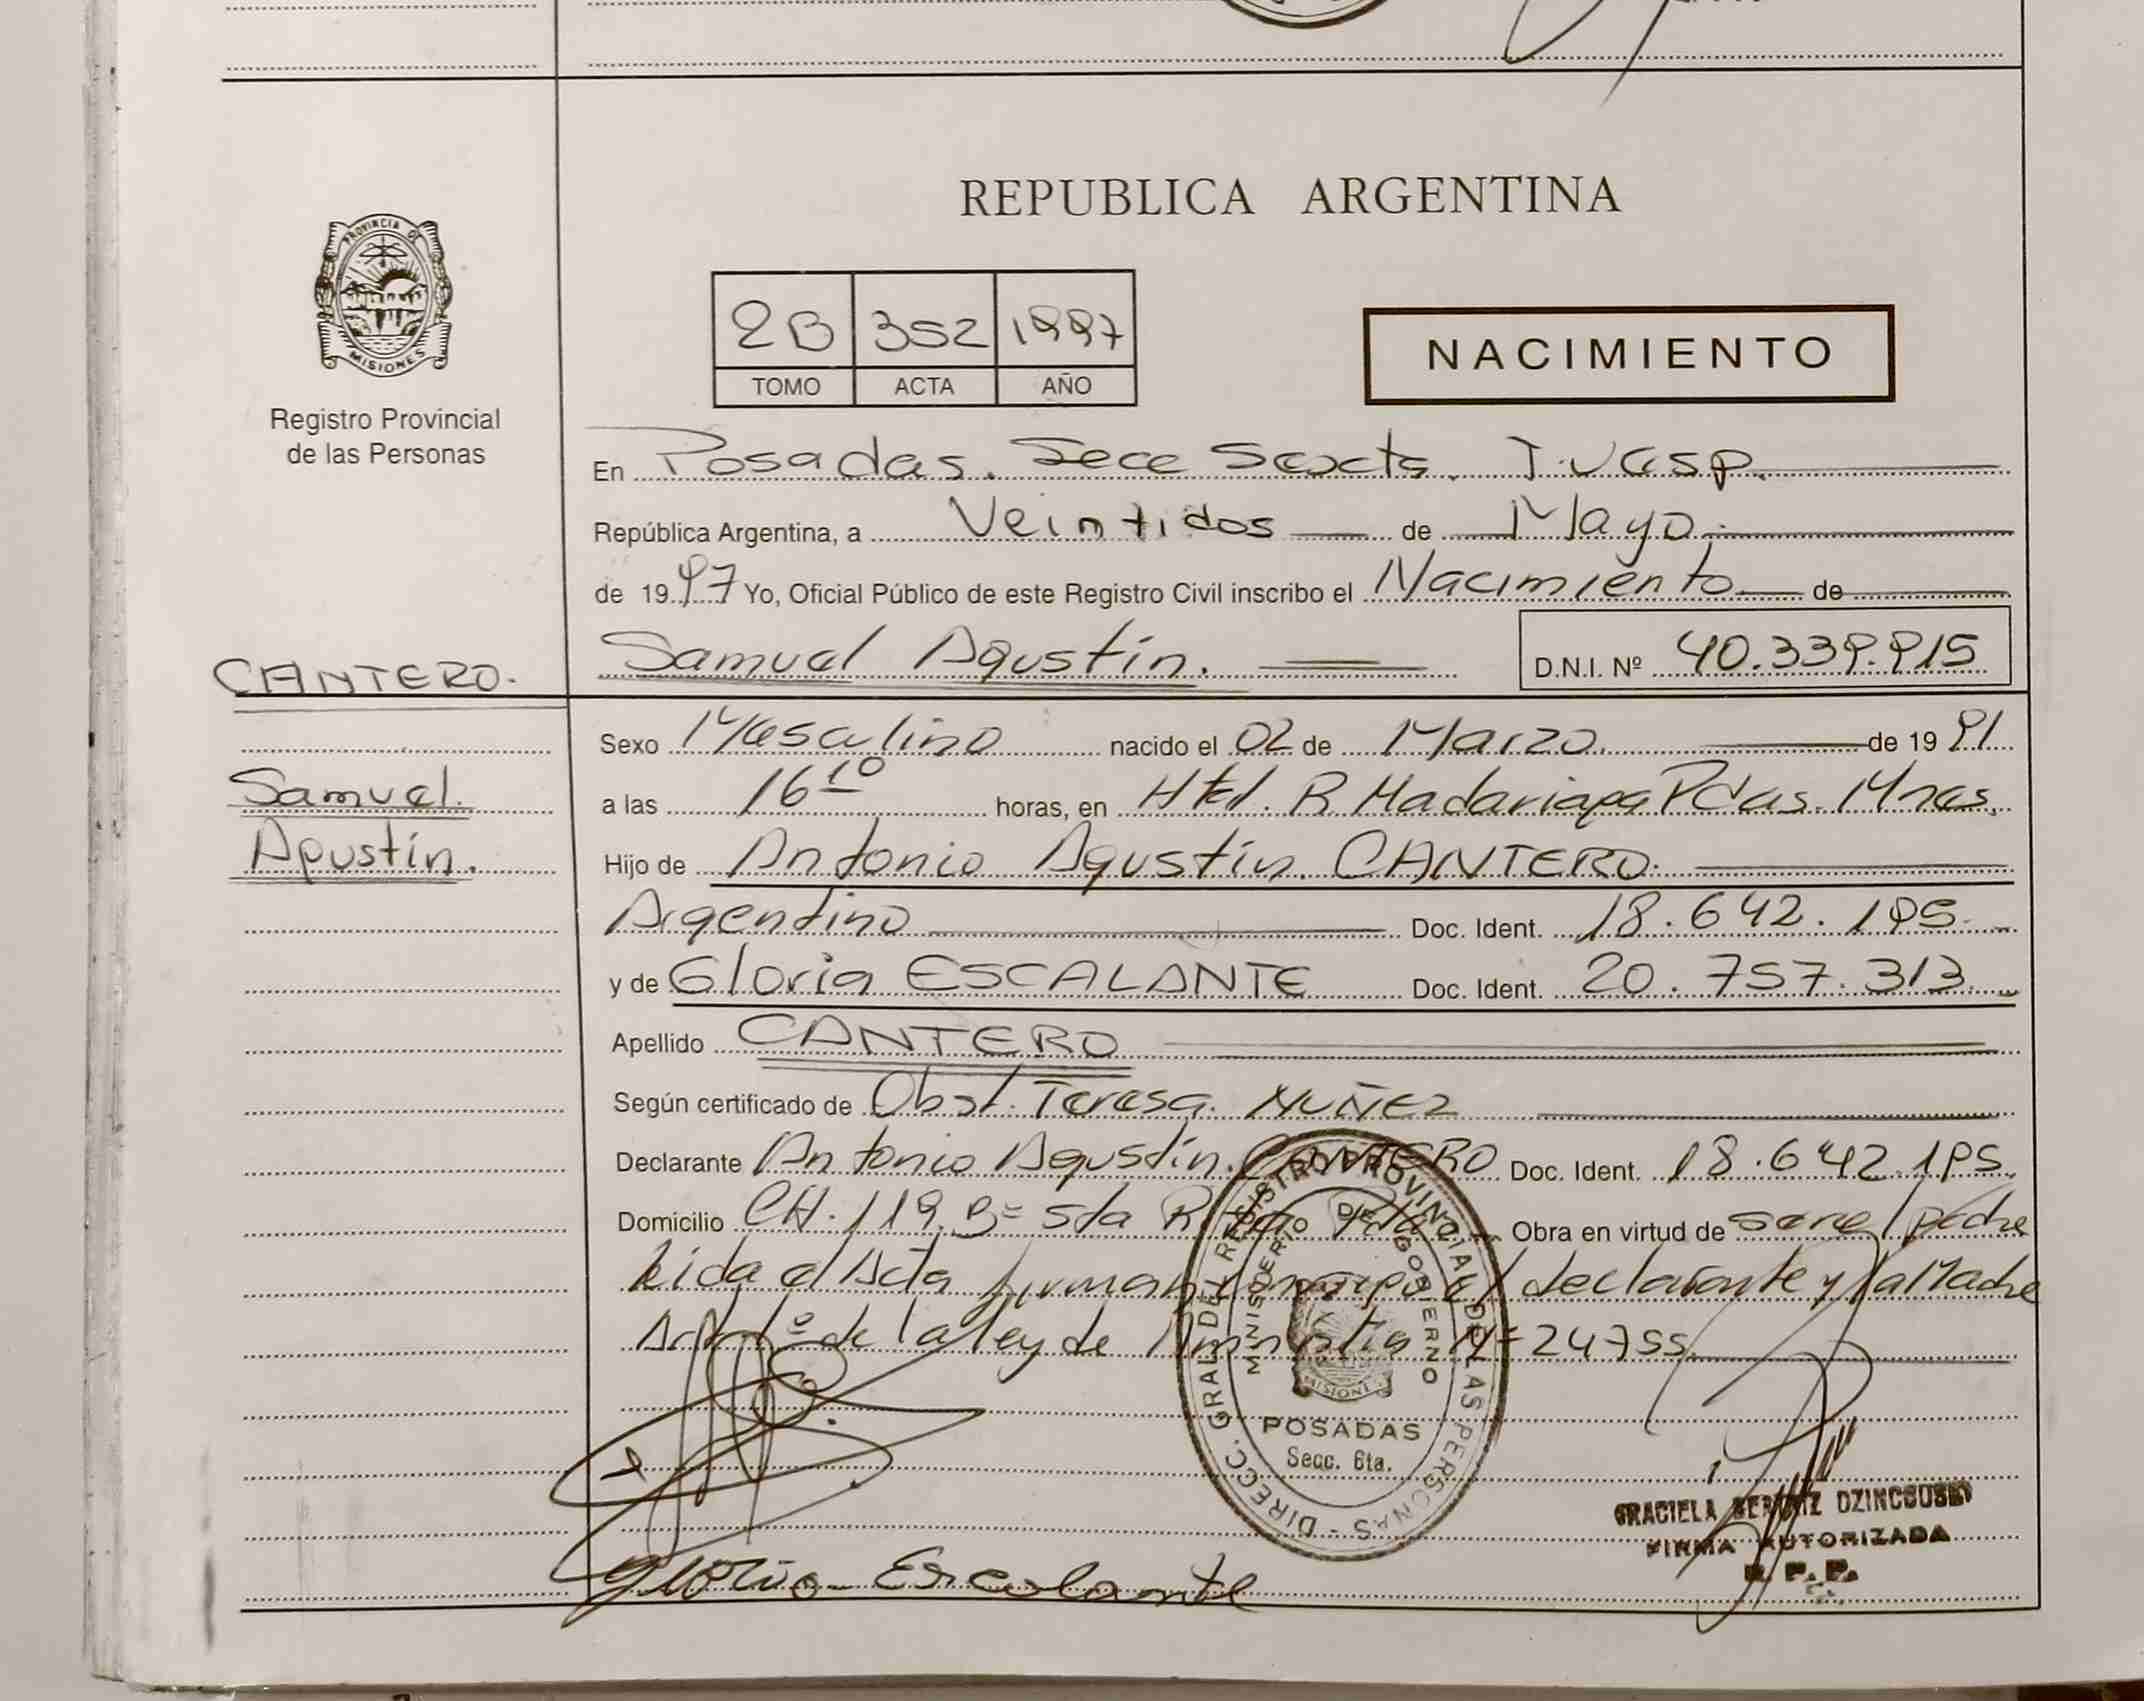 REPUBLICA ARGENTINA
PROVINCIA DE
MISIONES
Registro Provincial
de las Personas
2B 352 1997
TOMO ACTA AÑO
NACIMIENTO
En Posadas. Secc Sexta.
República Argentina, a Veintidos de Mayo
de 1997 Yo, Oficial Público de este Registro Civil inscribo el Nacimiento de
Samuel Agustín. D.N.I. Nº 40.339.915
CANTERO.
Samuel.
Agustín.
Sexo Masculino nacido el 02 de Marzo de 1991
a las 16 10 horas, en Htal. R. Madariaga Pdas. Mnes.
Hijo de Antonio Agustín. CANTERO.
Argentino Doc. Ident. 18.642.195.
y de Gloria ESCALANTE Doc. Ident. 20.757.313
Apellido CANTERO
Según certificado de Obst. Teresa. NUÑEZ
Declarante Antonio Agustín. CANTERO Doc. Ident. 18.642.195
Domicilio CH. 119. Bº Sta Rita Obra en virtud de padre
Leida el Acta firman conmigo el declarante y la Madre
de la ley de Amnistia Nº 24755
DIRECC. GRAL. DEL REGISTRO PROVINCIAL DE LAS PERSONAS
MINISTERIO DE GOBIERNO
MISIONES
POSADAS
Secc. 6ta.
GRACIELA
FIRMA AUTORIZADA
R. P. P.
Gloria Escalante